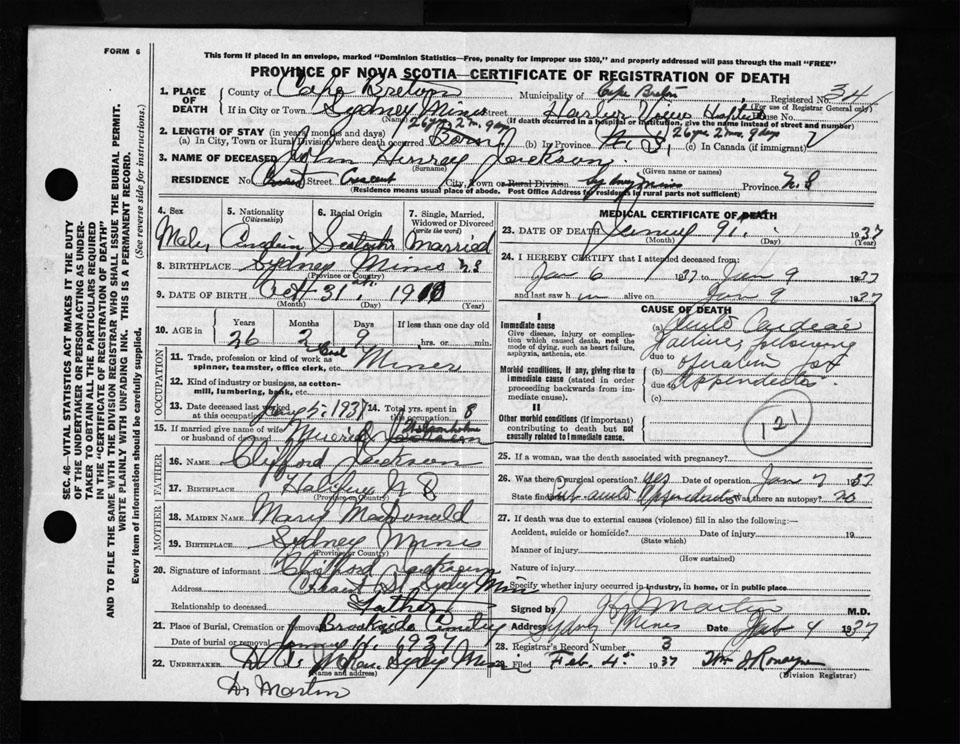 FORM 6
This form if placed in an envelope, marked "Dominion Statistics—Free, penalty for improper use $300," and properly addressed will pass through the mail "FREE"
PROVINCE OF NOVA SCOTIA—CERTIFICATE OF REGISTRATION OF DEATH
1. PLACE OF DEATH
County of Cape Breton Municipality of Cape Breton Registered No. 34
(For use of Registrar General only)
If in City or Town Sydney Mines Street Harbor View Hospital House No.
(Name) (If death occurred in a hospital or institution, give the name instead of street and number)
2. LENGTH OF STAY (in years, months and days) 26 yrs 2 m. 9 days 26 yrs 2 mos. 9 days
(a) In City, Town or Rural Division where death occurred Born (b) In Province N.S. (c) In Canada (if immigrant)
3. NAME OF DECEASED John Henray Jackson
(Surname) (Given name or names)
RESIDENCE No. Street Crescent City, Town or Rural Division Sydney Mines Province N.S
(Residence means usual place of abode. Post Office Address for residents in rural parts not sufficient)
4. Sex
Male
5. Nationality
(Citizenship)
Canadian
6. Racial Origin
7. Single, Married, Widowed or Divorced
(write the word)
Married
8. BIRTHPLACE Sydney Mines N.S
(Province or Country)
9. DATE OF BIRTH Oct 31 1910
(Month) (Day) (Year)
10. AGE in
Years Months Days If less than one day old
26 2 9 hrs. or min.
OCCUPATION
11. Trade, profession or kind of work as spinner, teamster, office clerk, etc. Coal Miner
12. Kind of industry or business, as cotton-mill, lumbering, bank, etc.
13. Date deceased last worked at this occupation Jany 5. 1937
14. Total yrs. spent in this occupation 8
15. If married give name of wife or husband of deceased Jackson
FATHER
16. NAME Clifford Jackson
17. BIRTHPLACE Halifax N S
(Province or Country)
MOTHER
18. MAIDEN NAME Mary MacDonald
19. BIRTHPLACE Sydney Mines
(Province or Country)
20. Signature of informant Clifford Jackson
Address Crescent St Sydney Mines
Relationship to deceased Father
21. Place of Burial, Cremation or Removal Brookside Cemetery
Date of burial or removal 11. 1937
22. UNDERTAKER Sydney Mines
(Name and address)
Dr Martin
MEDICAL CERTIFICATE OF DEATH
23. DATE OF DEATH 9 1937
(Month) (Day) (Year)
24. I HEREBY CERTIFY that I attended deceased from:
Jan 6 1937 to Jan 9 1937
and last saw him alive on Jan 9 1937
CAUSE OF DEATH
I
Immediate cause
Give disease, injury or complication which caused death, not the mode of dying, such as heart failure, asphyxia, asthenia, etc.
Morbid conditions, if any, giving rise to immediate cause (stated in order proceeding backwards from immediate cause).
II
Other morbid conditions (if important) contributing to death but not causally related to immediate cause.
(a) Acute Cardiac
failure following
due to
(b) operation for
due to appendicitis
(c)
121
25. If a woman, was the death associated with pregnancy?
26. Was there a surgical operation? yes Date of operation Jan 7 1937
State findings acute Appendicitis Was there an autopsy? no
27. If death was due to external causes (violence) fill in also the following:—
Accident, suicide or homicide? Date of injury 19
(State which)
Manner of injury
(How sustained)
Nature of injury
Specify whether injury occurred in industry, in home, or in public place
Signed by Martin M.D.
Address Sydney Mines Date Feb 4 1937
28. Registrar's Record Number 3
29. Filed Feb. 4th 1937
(Division Registrar)
SEC. 46—VITAL STATISTICS ACT MAKES IT THE DUTY OF THE UNDERTAKER OR PERSON ACTING AS UNDERTAKER TO OBTAIN ALL THE PARTICULARS REQUIRED IN THE "CERTIFICATE OF REGISTRATION OF DEATH" AND TO FILE THE SAME WITH THE DIVISION REGISTRAR WHO SHALL ISSUE THE BURIAL PERMIT.
WRITE PLAINLY WITH UNFADING INK. THIS IS A PERMANENT RECORD.
Every item of information should be carefully supplied. (See reverse side for instructions.)